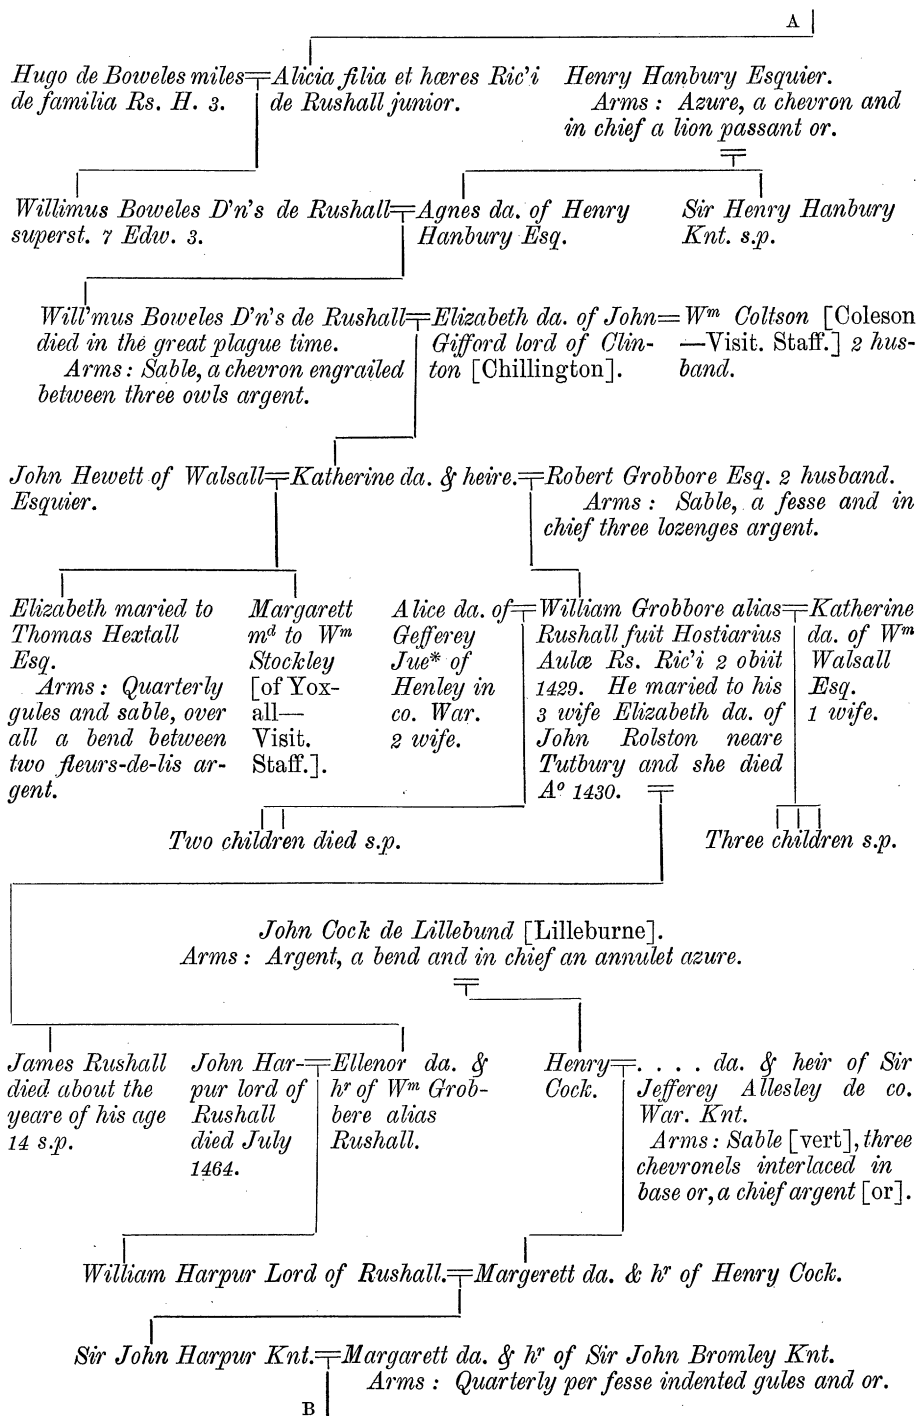 A
Hugo de Boweles miles = Alicia filia et hæres Ric'i
de familia Rs. H. 3.
de Rushall junior.
Henry Hanbury Esquier.
Arms : Azure, a chevron and
in chief a lion passant or.
Willimus Boweles D'n's de Rushall = Agnes da. of Henry
superst. 7 Edw. 3.
Hanbury Esq.
Sir Henry Hanbury
Knt. s.p.
Will'mus Boweles D'n's de Rushall = Elizabeth da. of John = Wm Coltson [Coleson
died in the great plague time.
Arms : Sable, a chevron engrailed
between three owls argent.
Gifford lord of Clin-
ton [Chillington].
—Visit. Staff.] 2 hus-
band.
John Hewett of Walsall = Katherine da. & heire. = Robert Grobbore Esq. 2 husband.
Esquier.
Arms : Sable, a fesse and in
chief three lozenges argent.
Elizabeth maried to
Thomas Hextall
Esq.
Arms : Quarterly
gules and sable, over
all a bend between
two fleurs-de-lis ar-
gent.
Margarett
md to Wm
Stockley
[of Yox-
all—
Visit.
Staff.].
Alice da. of
Gefferey
Jue* of
Henley in
co. War.
2 wife.
William Grobbore alias
Rushall fuit Hostiarius
Aulæ Rs. Ric'i 2 obiit
1429. He maried to his
3 wife Elizabeth da. of
John Rolston neare
Tutbury and she died
Ao 1430.
Katherine
da. of Wm
Walsall
Esq.
1 wife.
Two children died s.p.
Three children s.p.
John Cock de Lillebund [Lilleburne].
Arms : Argent, a bend and in chief an annulet azure.
James Rushall
died about the
yeare of his age
14 s.p.
John Har-
pur lord of
Rushall
died July
1464.
Ellenor da. &
hr of Wm Grob-
bere alias
Rushall.
Henry
Cock.
. . . . da. & heir of Sir
Jefferey Allesley de co.
War. Knt.
Arms : Sable [vert], three
chevronels interlaced in
base or, a chief argent [or].
William Harpur Lord of Rushall. = Margerett da. & hr of Henry Cock.
Sir John Harpur Knt. = Margarett da. & hr of Sir John Bromley Knt.
Arms : Quarterly per fesse indented gules and or.
B